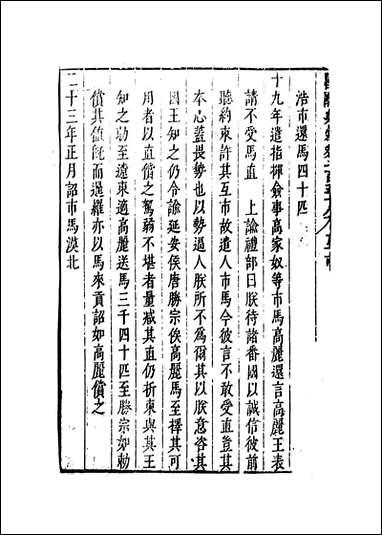 浩市還馬四十匹
十九年遣指揮僉事高家奴等市馬高麗還言高麗王表
請不受馬直　上諭禮部曰朕待諸番國以誠信彼前
聽約束許其互市故遣人市馬今彼言不敢受直豈其
本心蓋畏勢也以勢逼人朕所不為爾其以朕意咨其
國王知之仍令諭延安侯唐勝宗俟高麗馬至擇其可
用者以直償之駑弱不堪者量减其直仍折柬與其王
知之勅至遼東適高麗送馬三千四十匹至勝宗如勅
償其值既而暹羅亦以馬來貢詔如高麗償之
二十三年正月詔市馬漠北